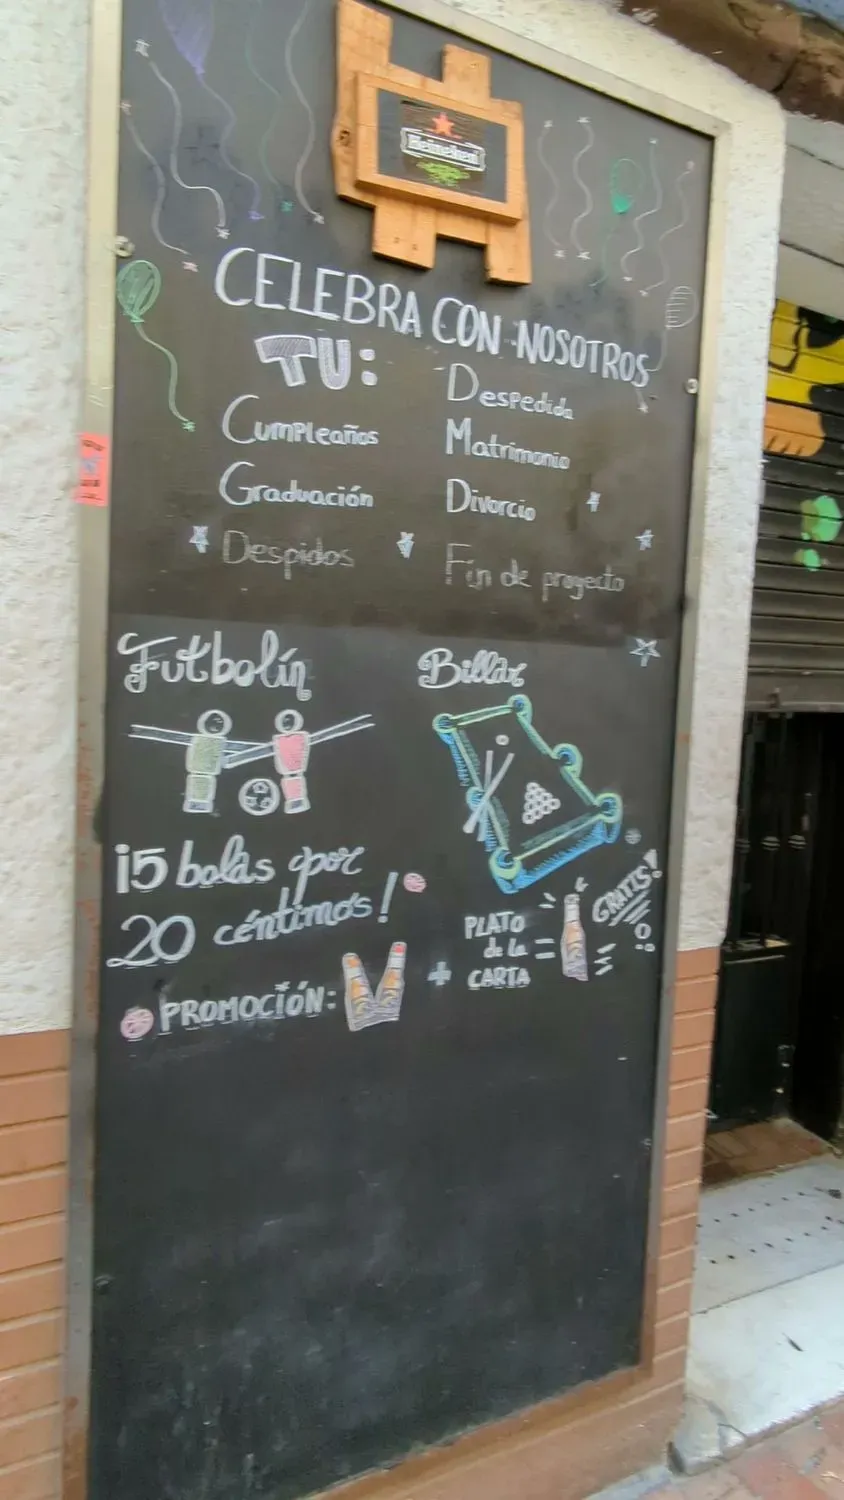 Heineken
CELEBRA CON NOSOTROS
TU:
Cumpleaños
Graduación
Despidos
Despedida
Matrimonio
Divorcio
Fin de proyecto
Futbolín
¡5 bolas por
20 céntimos!
Billar
PROMOCIÓN:
+
PLATO
de la
CARTA
=
GRATIS!